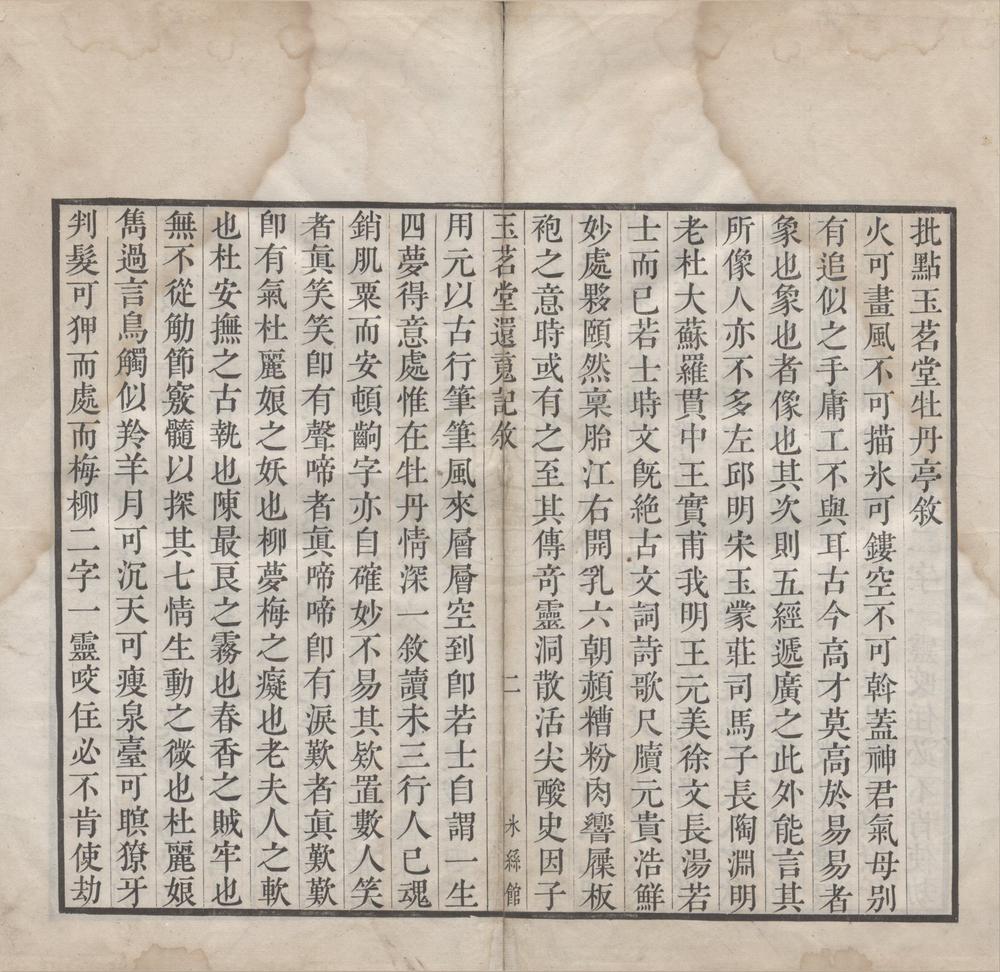 批點玉茗堂牡丹亭敘
火可畫風不可描氷可鏤空不可斡蓋神君氣母别
有追似之手庸工不與耳古今高才莫高於易易者
象也象也者像也其次則五經遞廣之此外能言其
所像人亦不多左邱明宋玉蒙莊司馬子長陶淵明
老杜大蘇羅貫中王實甫我明王元美徐文長湯若
士而已若士時文旣絶古文詞詩歌尺牘元貴浩鮮
妙處夥頤然稟胎江右開乳六朝頮糟粉肉響屧板
袍之意時或有之至其傳奇靈洞散活尖酸史因子
玉茗堂還䰟記敘
二
氷絲館
用元以古行筆筆風來層層空到卽若士自謂一生
四夢得意處惟在牡丹情深一敘讀未三行人已魂
銷肌粟而安頓齣字亦自確妙不易其欵置數人笑
者眞笑笑卽有聲啼者眞啼啼卽有淚歎者眞歎歎
卽有氣杜麗娘之妖也柳夢梅之癡也老夫人之軟
也杜安撫之古執也陳最良之霧也春香之賊牢也
無不從觔節竅髓以探其七情生動之微也杜麗娘
雋過言鳥觸似羚羊月可沉天可瘦泉臺可瞑獠牙
判髮可狎而處而梅柳二字一靈咬住必不肯使劫